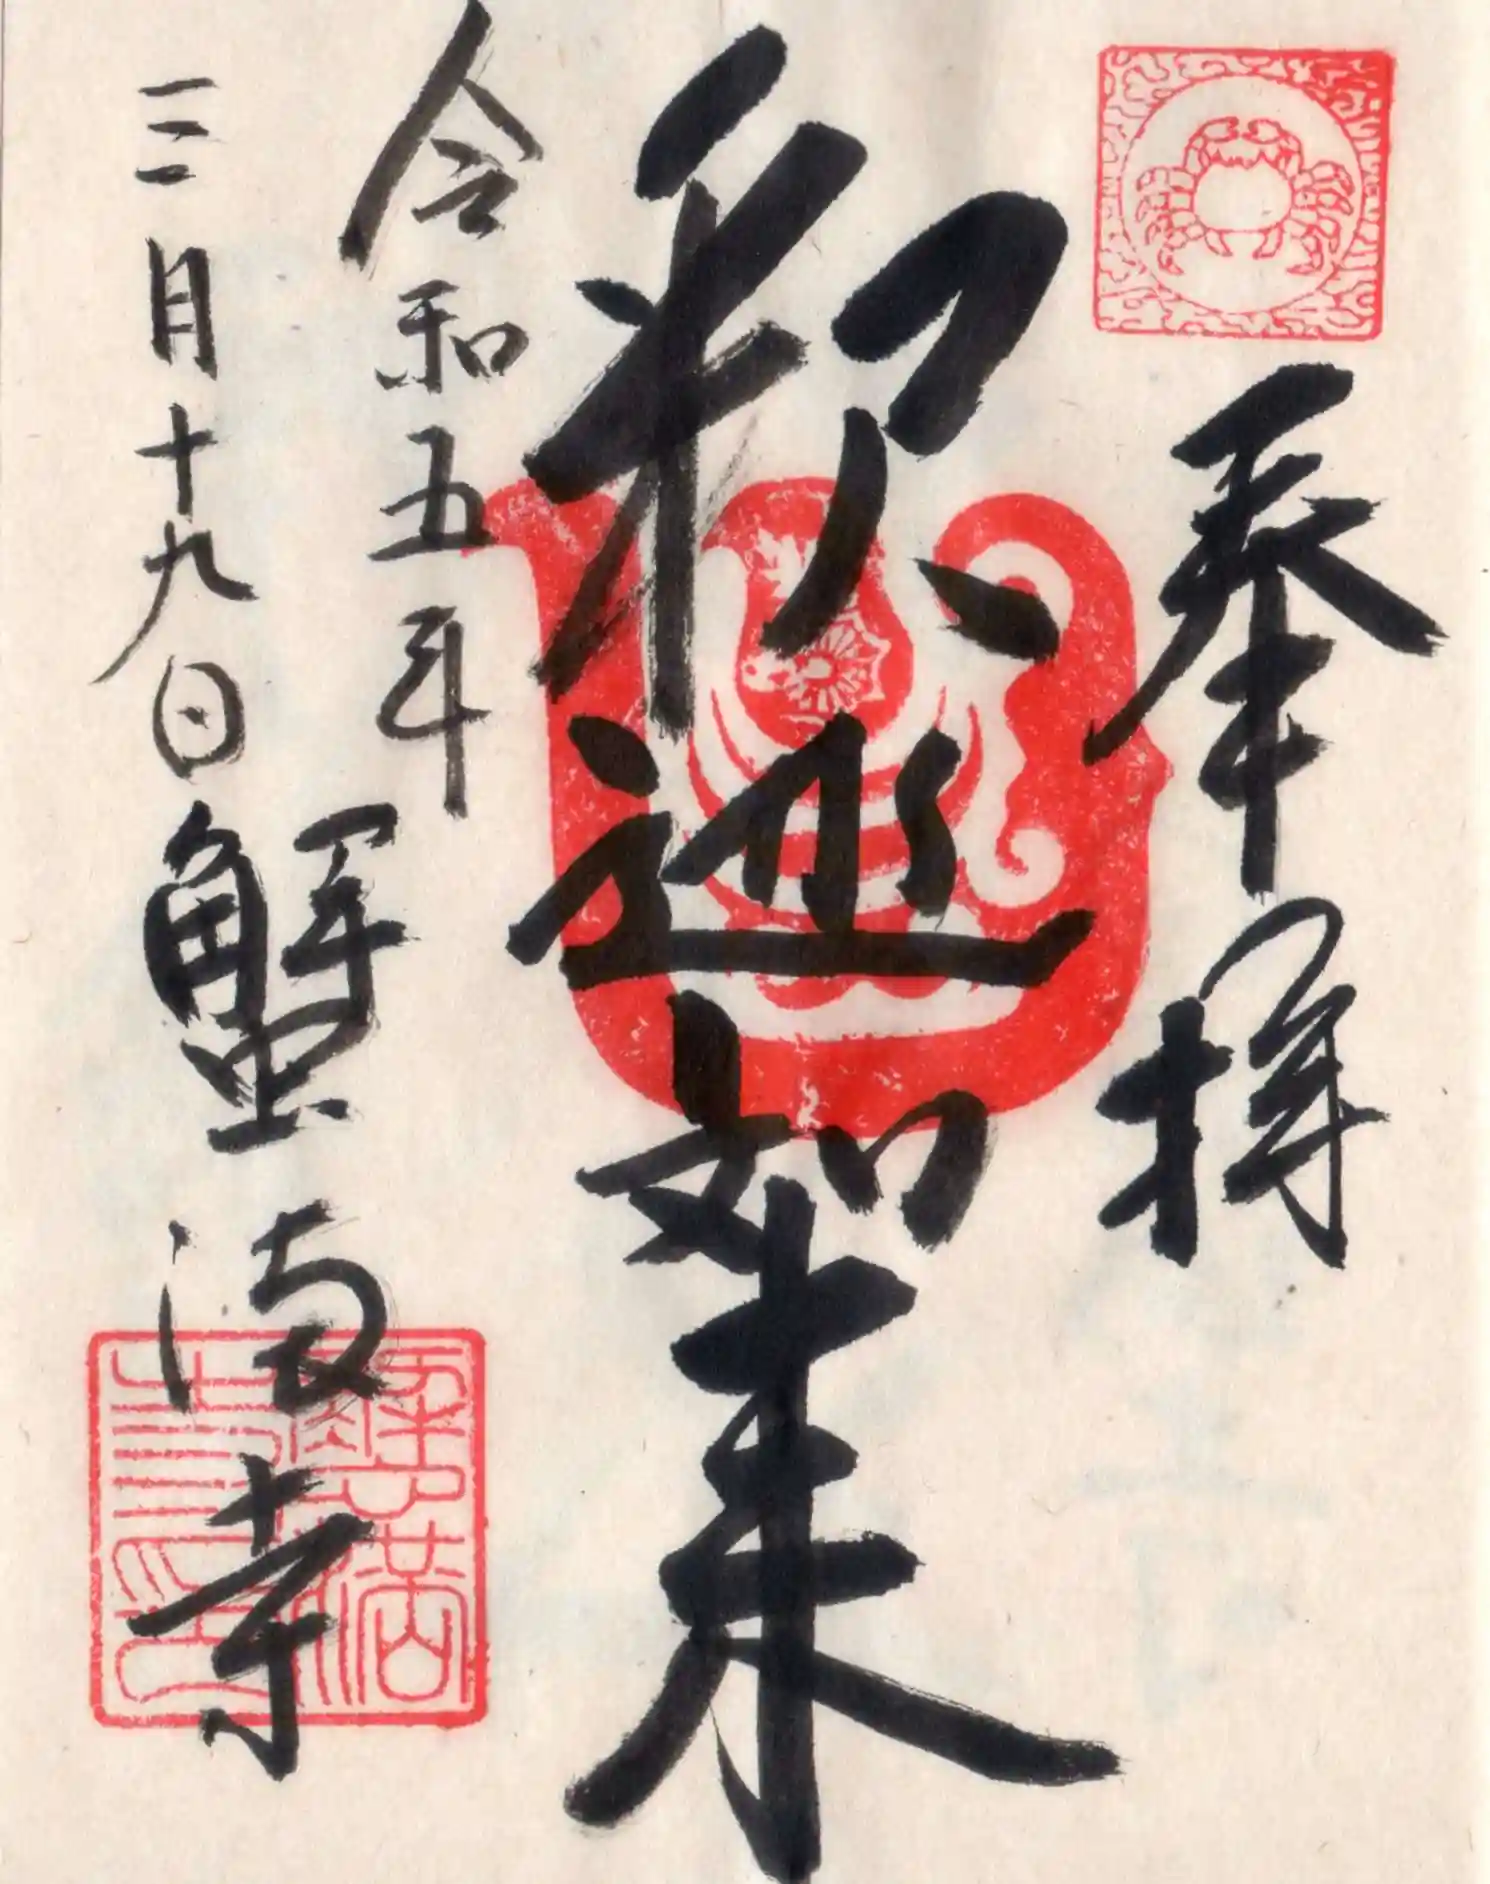 奉拝
釈迦如来
令和五年
三月十九日 蟹満寺
蟹満
寺印